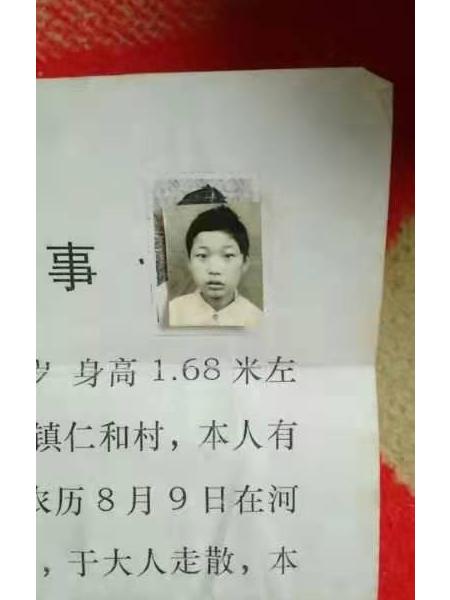 事
身高 1.68 米左
镇仁和村，本人有
历 8 月 9 日在河
，于大人走散，本